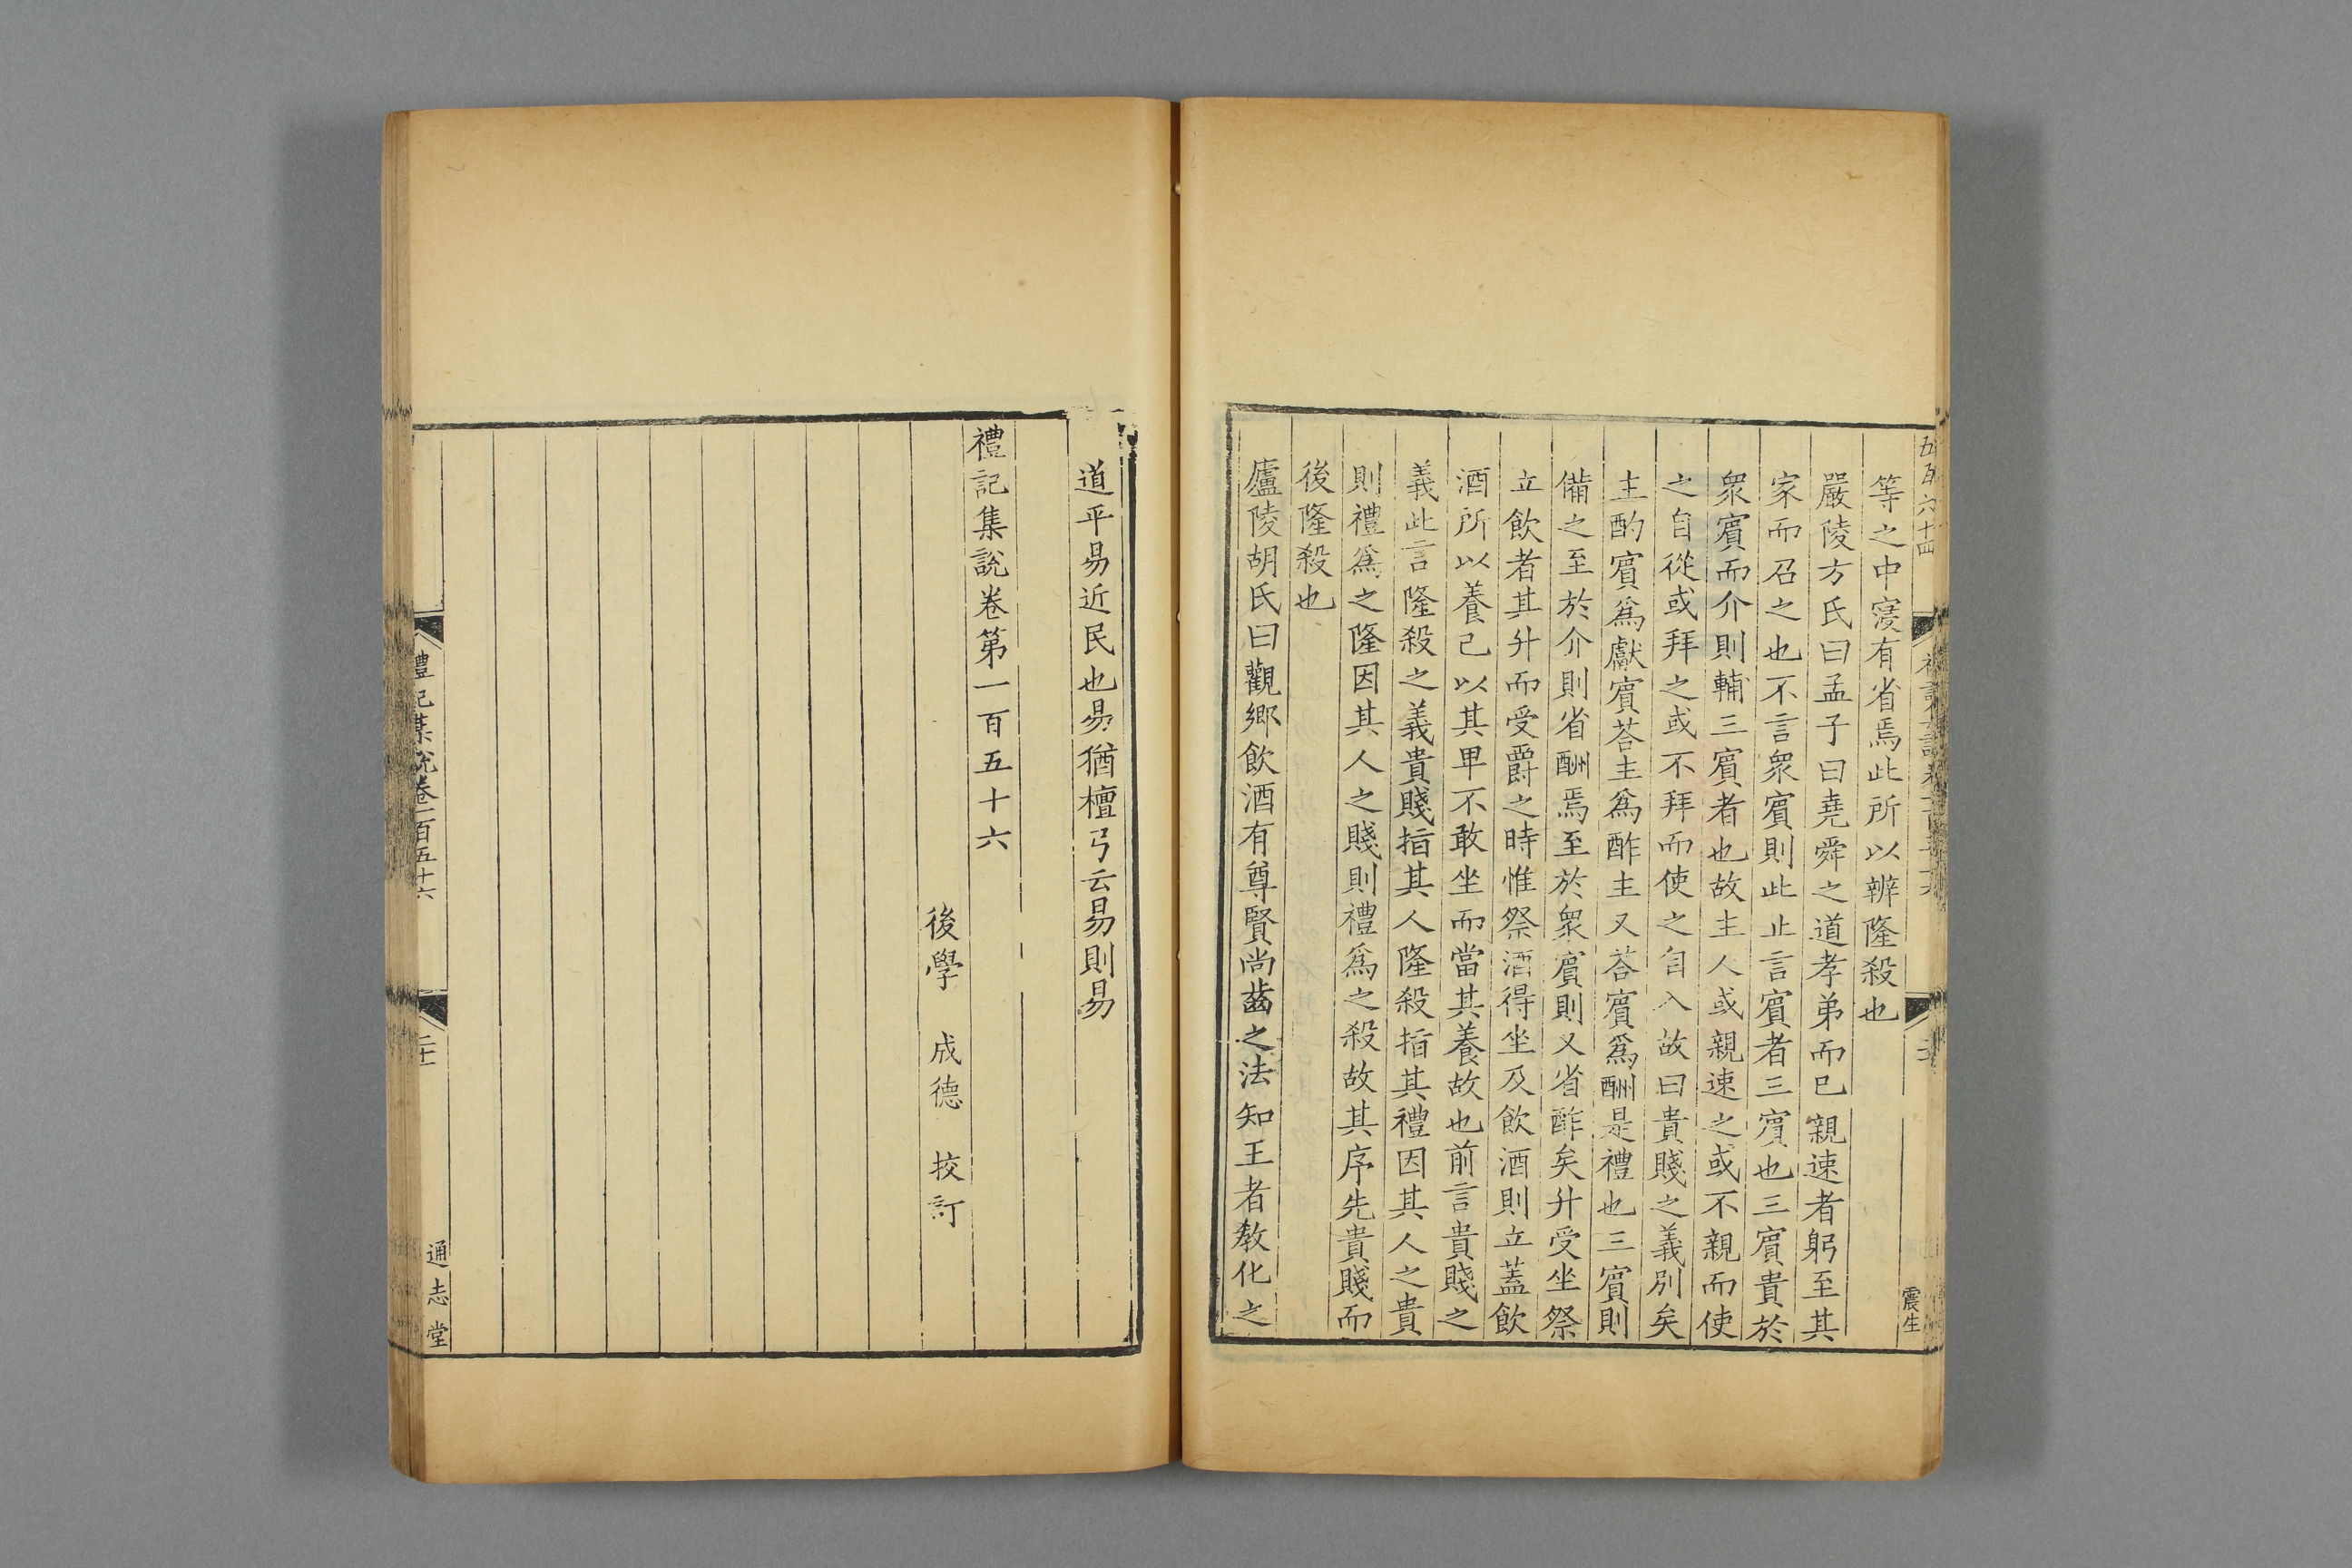 五百六十四
等之中寖有省焉此所以辨隆殺也
嚴陵方氏曰孟子曰堯舜之道孝弟而已親速者躬至其
家而召之也不言衆賔則此止言賔者三賔也三賔貴於
衆賔而介則輔三賔者也故主人或親速之或不親而使
之自從或拜之或不拜而使之自入故曰貴賤之義別矣
主酌賔爲獻賔荅主爲酢主又荅賔爲酬是禮也三賔則
備之至於介則省酬焉至於衆賔則又省酢矣升受坐祭
立飲者其升而受爵之時惟祭酒得坐及飲酒則立蓋飲
酒所以養己以其卑不敢坐而當其養故也前言貴賤之
義此言隆殺之義貴賤指其人隆殺指其禮因其人之貴
則禮爲之隆因其人之賤則禮爲之殺故其序先貴賤而
後隆殺也
廬陵胡氏曰觀鄉飲酒有尊賢尚齒之法知王者敎化之
震生
道平易近民也易猶檀弓云易則易
禮記集說卷第一百五十六
後學 成德 挍訂
禮記集說卷一百五十六
二十一
通志堂